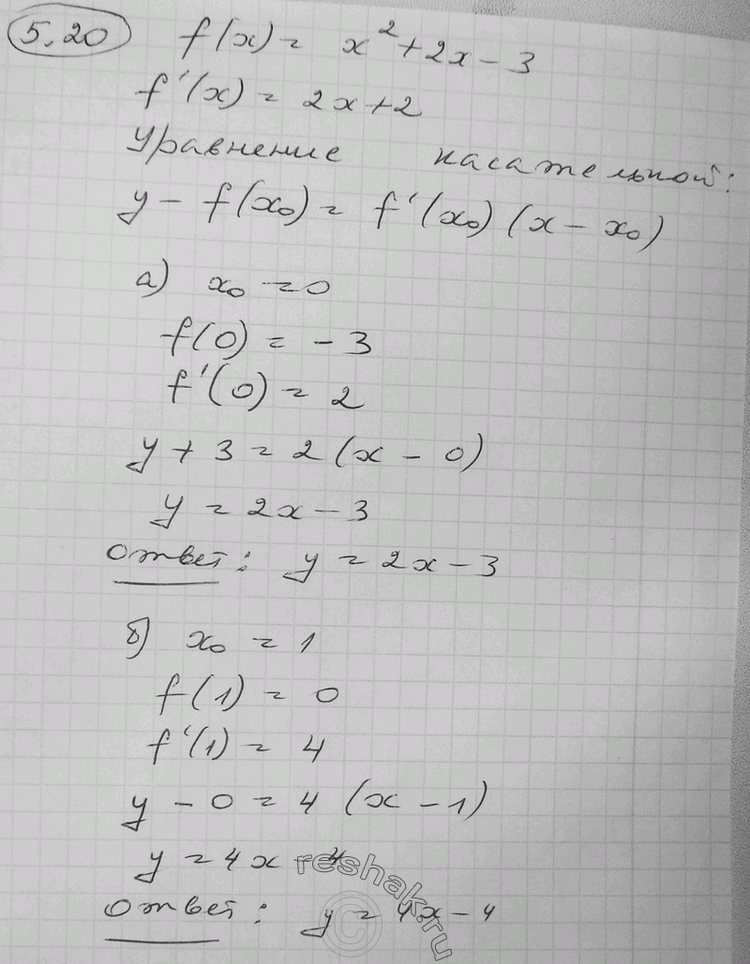 5.20 f(x) = x² + 2x - 3
f'(x) = 2x + 2
Уравнение касательной:
y - f(x₀) = f'(x₀) (x - x₀)
а) x₀ = 0
f(0) = -3
f'(0) = 2
y + 3 = 2 (x - 0)
y = 2x - 3
Ответ: y = 2x - 3
б) x₀ = 1
f(1) = 0
f'(1) = 4
y - 0 = 4 (x - 1)
y = 4x - 4
Ответ: y = 4x - 4
reshak.ru
©